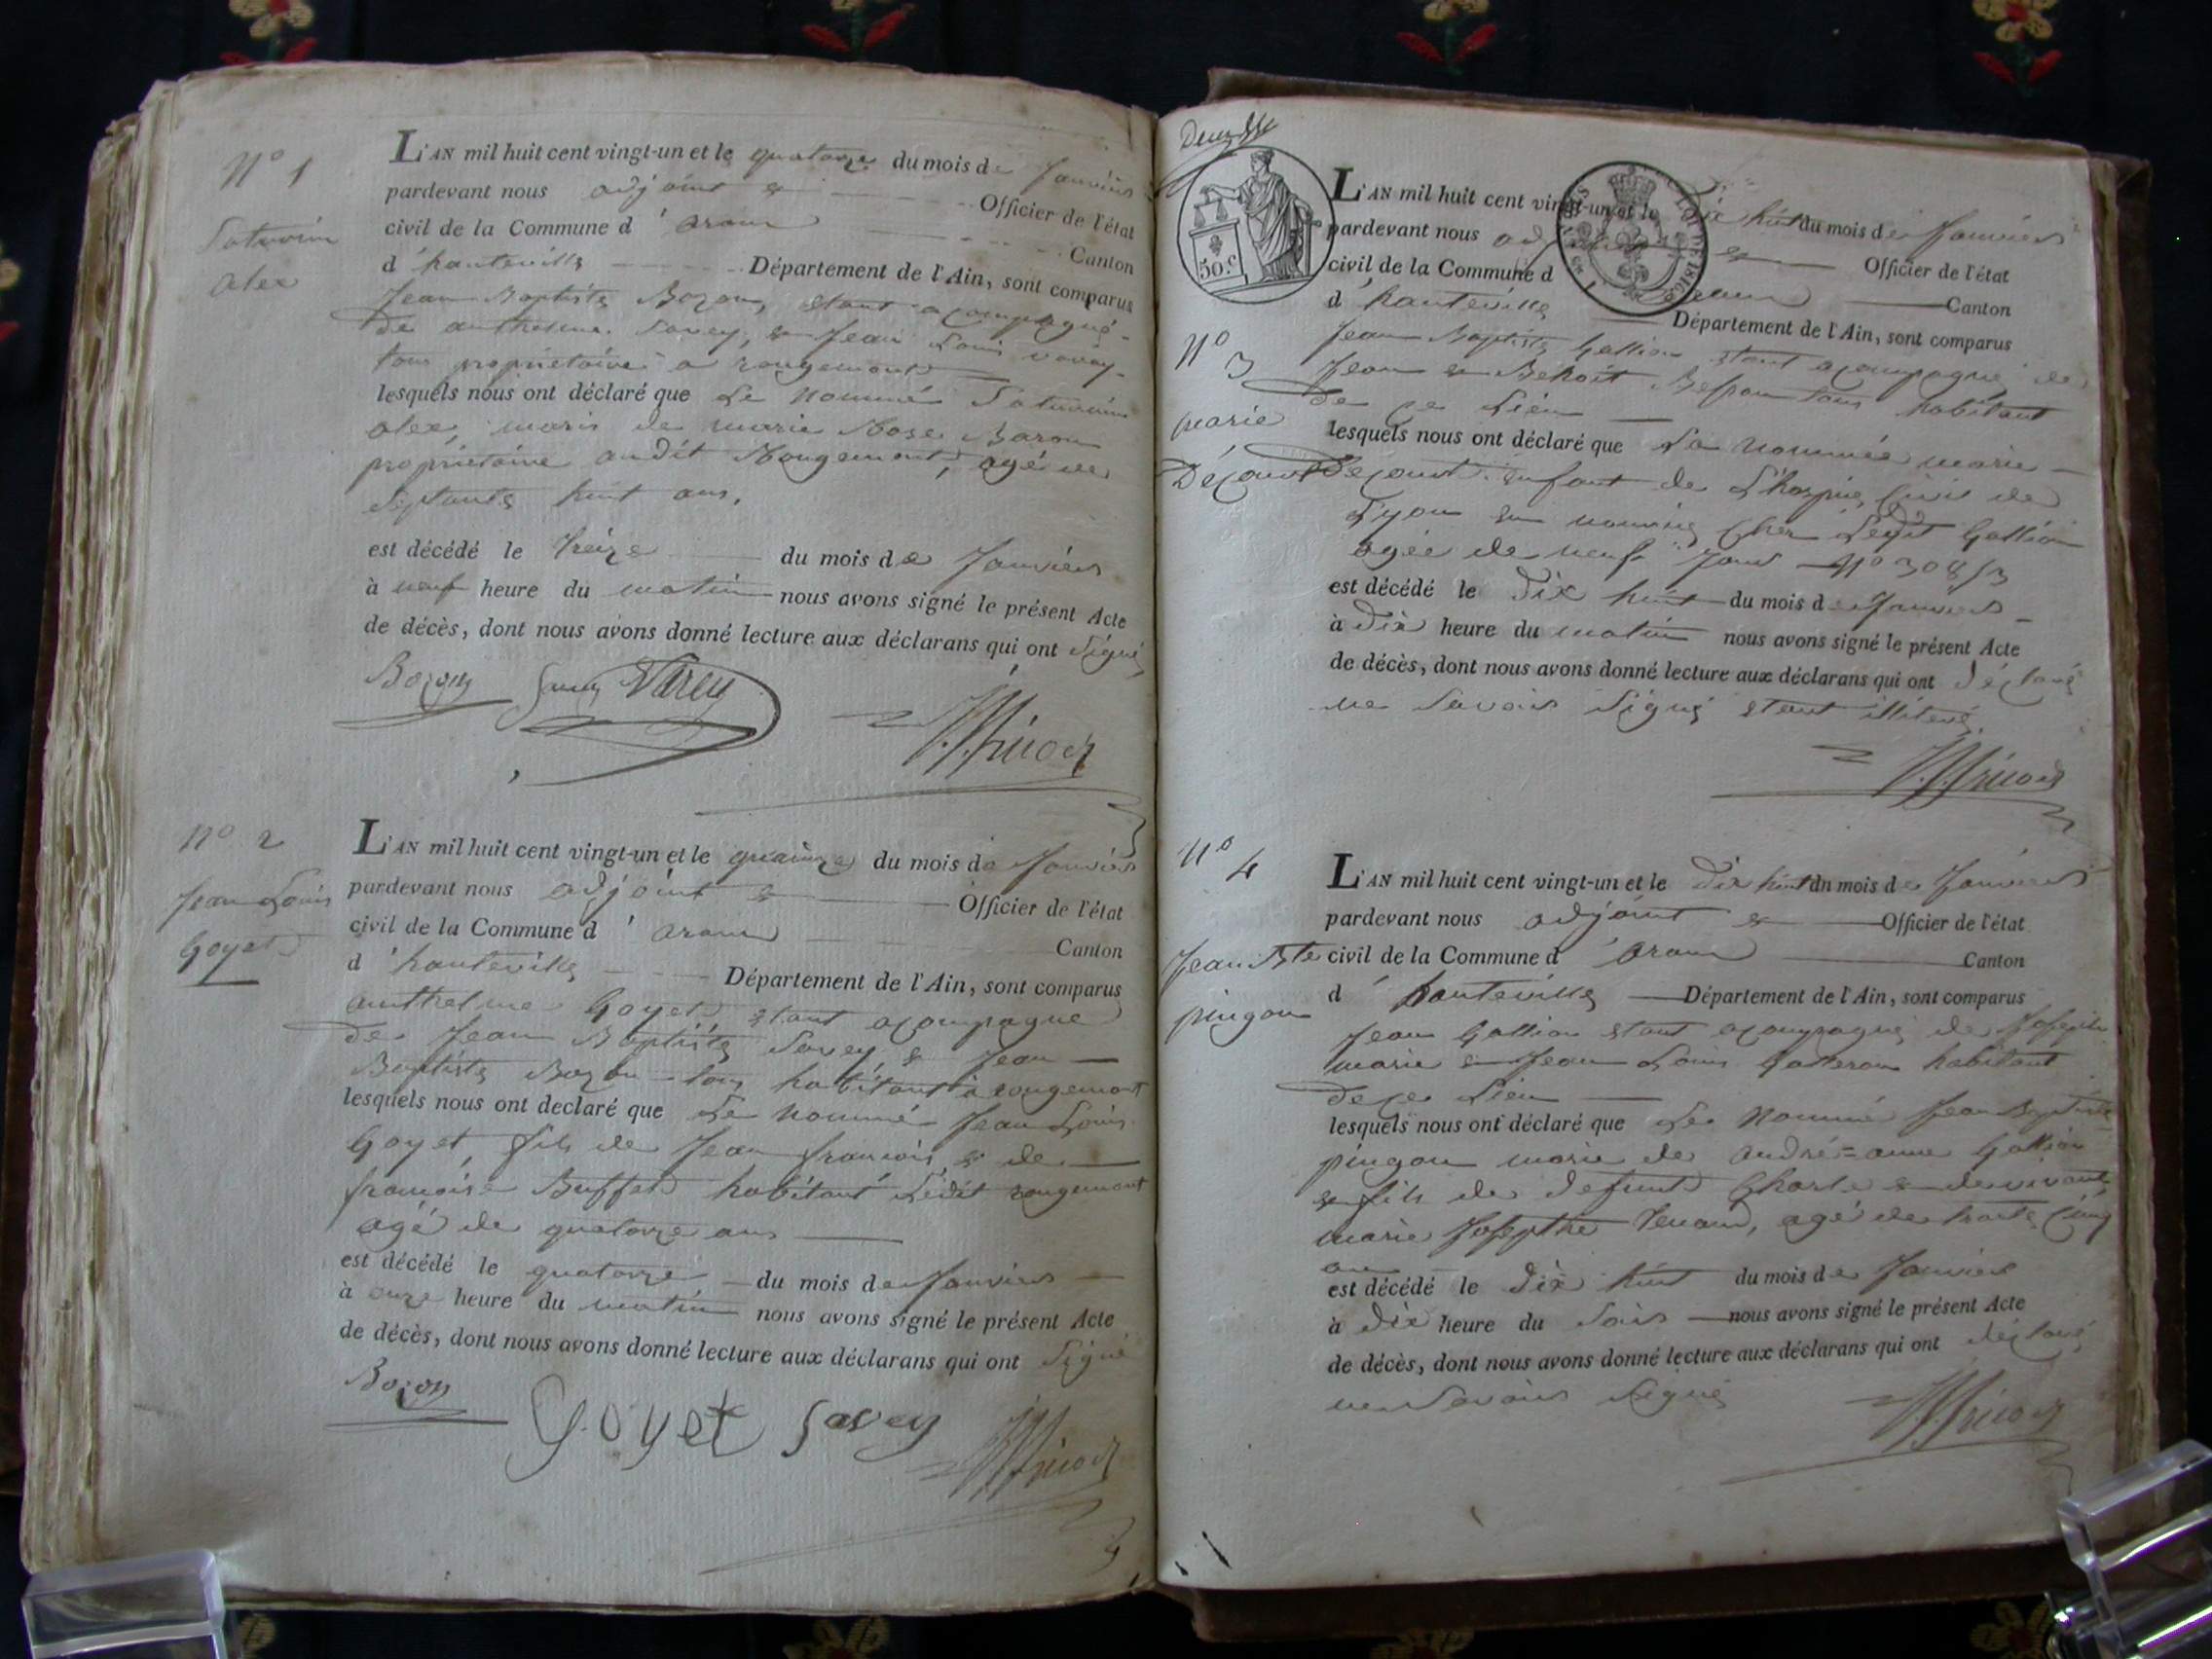 N° 1
Saturnin
alex
L'AN mil huit cent vingt-un et le quatorze du mois de Janviers
pardevant nous adjoint & Officier de l'état
civil de la Commune d' aranc Canton
d' hauteville Département de l'Ain, sont comparus
Jean Baptiste Bozon, etant acompagné
de anthelme Savey, & Jean Louis
tous propriétaire a rougemont
lesquels nous ont déclaré que Le Nommé Saturnin
alex, maris de marie Rose
propriétaire audit Rougemont, agé de
Septante huit ans,
est décédé le treize du mois de Janviers
à neuf heure du matin nous avons signé le présent Acte
de décès, dont nous avons donné lecture aux déclarans qui ont Signé
Bozon Savey
N° 2
Jean Louis
Goyet
L'AN mil huit cent vingt-un et le quainze du mois de Janviers
pardevant nous adjoint & Officier de l'état
civil de la Commune d' aranc Canton
d' hauteville Département de l'Ain, sont comparus
anthelme Goyet etant acompagné
de Jean Baptiste Savey, & Jean
Baptiste Bozon tous habitant à rougemont
lesquels nous ont declaré que Le Nommé Jean Louis
Goyet, fils de Jean francois, & de
francoise Buffet habitant Ledit rougemont
agé de quatorze ans
est décédé le quatorze du mois de Janviers
à onze heure du matin nous avons signé le présent Acte
de décès, dont nous avons donné lecture aux déclarans qui ont Signé
Bozon Goyet Savey
50.c
L'AN mil huit cent vingt-un et le dix huit du mois de Janviers
pardevant nous & Officier de l'état
civil de la Commune d Canton
d' hauteville Département de l'Ain, sont comparus
N° 3
Jean Baptiste Gallion etant acompagné de
Jean & Benoit tous habitant
de ce Lieu
marie
lesquels nous ont déclaré que La Nommée marie
enfant de L'hospice Civil de
Lyon en nourrice Cher Ledit Gallion
agée de neuf Jours N°
est décédé le Dix huit du mois de Janviers
à Dix heure du matin nous avons signé le présent Acte
de décès, dont nous avons donné lecture aux déclarans qui ont déclaré
ne Savois Signé etant illiteré
N° 4
Jean Bte
pingon
L'AN mil huit cent vingt-un et le Dix huit du mois de Janviers
pardevant nous adjoint & Officier de l'état
civil de la Commune d' aranc Canton
d' hauteville Département de l'Ain, sont comparus
Jean Gallion etant acompagné de Joseph
marie & Jean Louis habitant
de ce Lieu
lesquels nous ont déclaré que Le Nommé Jean Baptiste
pingon marie de andré=anne Gallion
& fils de defunt Charle & de vivante
marie Josephte agé de trante Cinq
an
est décédé le Dix huit du mois de Janviers
à Dix heure du Soir nous avons signé le présent Acte
de décès, dont nous avons donné lecture aux déclarans qui ont déclaré
ne Savoir Signé